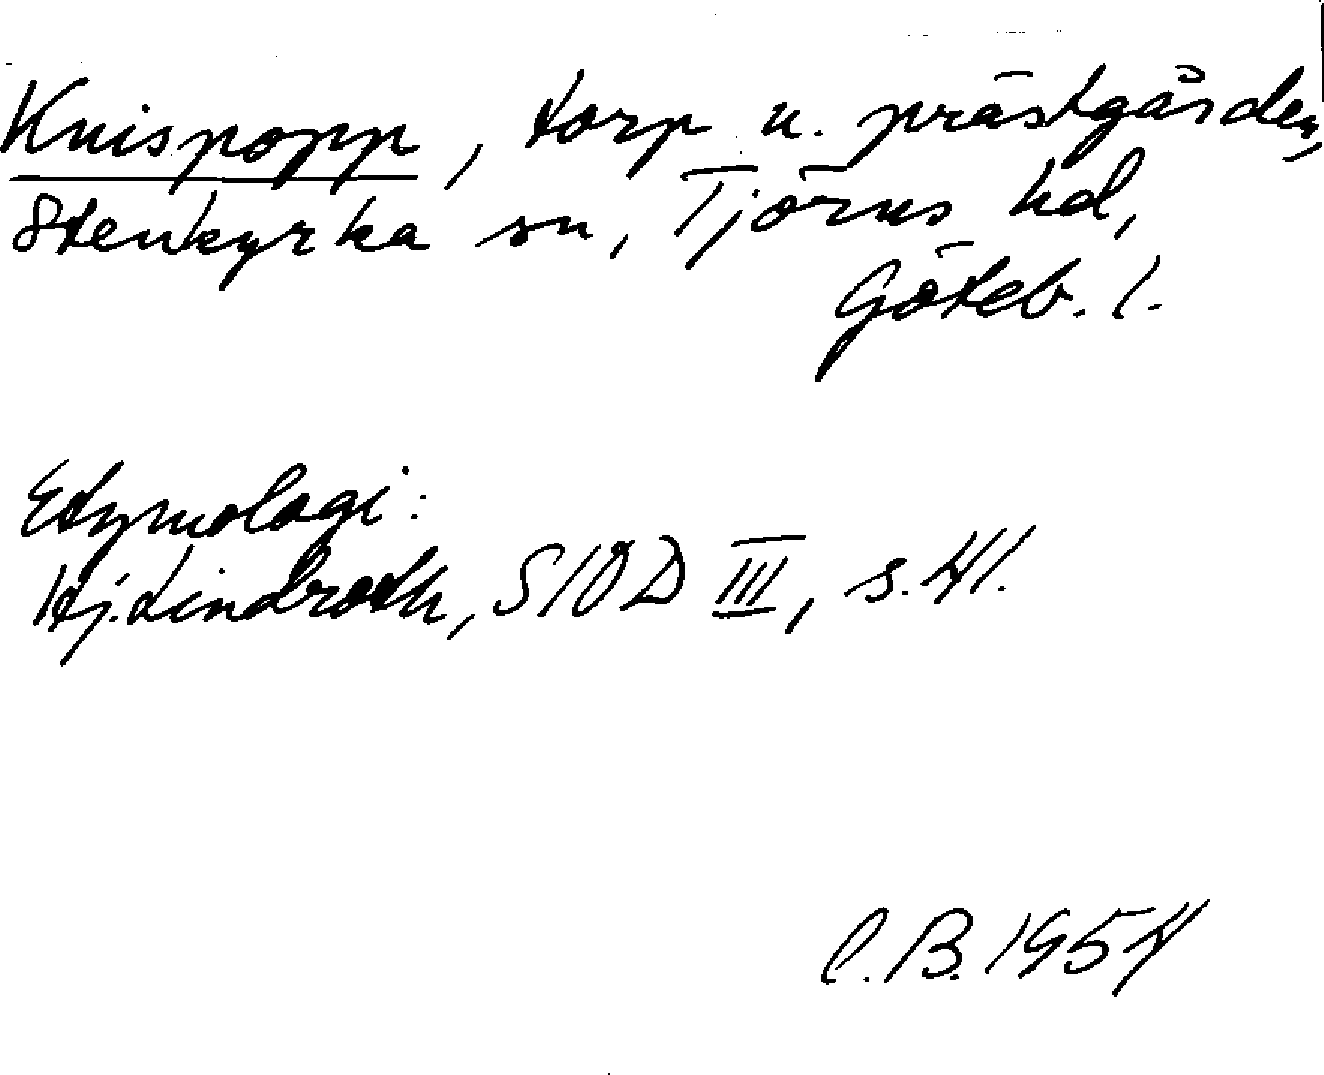 Knispopp, torp u. prästgården,
Stenkyrka sn, Tjörns hd,
Göteb. l.
Etymologi:
Hj. Lindroth, SIOD III, s. 41.
C.B. 1954